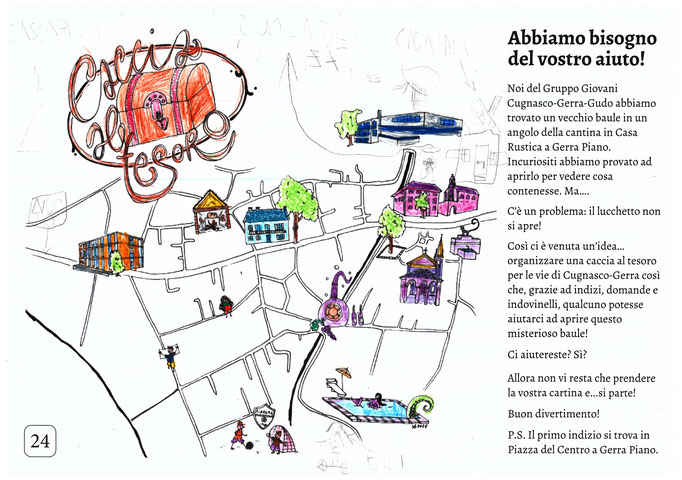 Caccia
al
tesoro
Abbiamo bisogno
del vostro aiuto!
Noi del Gruppo Giovani
Cugnasco-Gerra-Gudo abbiamo
trovato un vecchio baule in un
angolo della cantina in Casa
Rustica a Gerra Piano.
Incuriositi abbiamo provato ad
aprirlo per vedere cosa
contenesse. Ma....
C'è un problema: il lucchetto non
si apre!
Così ci è venuta un'idea...
organizzare una caccia al tesoro
per le vie di Cugnasco-Gerra così
che, grazie ad indizi, domande e
indovinelli, qualcuno potesse
aiutarci ad aprire questo
misterioso baule!
Ci aiutereste? Sì?
Allora non vi resta che prendere
la vostra cartina e...si parte!
Buon divertimento!
P.S. Il primo indizio si trova in
Piazza del Centro a Gerra Piano.
24